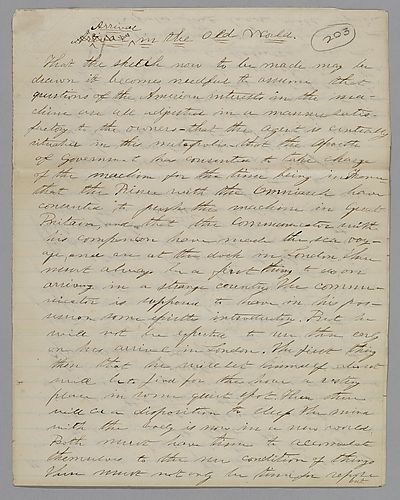 Arrival
in the Old World.
203
That the sketch now to be made may be
drawn it becomes needful to assume that
questions of the American interests in the ma-
chine are all adjusted in a manner satis-
factory to the owners—that the agent is centrally
situated in the metropolis—that the
of Government has consented to take charge
of the machine for the time being in
that the Prince with the have
consented to the machine in Great
Britain, and that the Communicator with
his companion have made the sea voy-
age, and are at the dock in London. There
must always be a first thing to do on
arriving in a strange country. The commu-
nicator is supposed to have in his pos-
session some epistles introductory. But he
will not be expected to use them early
on his arrival in London. The first thing
then that he will set himself about
will be to find for the hour a resting
place in some quiet spot. Then there
will be a disposition to sleep. The mind
with the body is now in a new world.
Both must have time to accomodate
themselves to the new condition of things
There must not only be time for
but